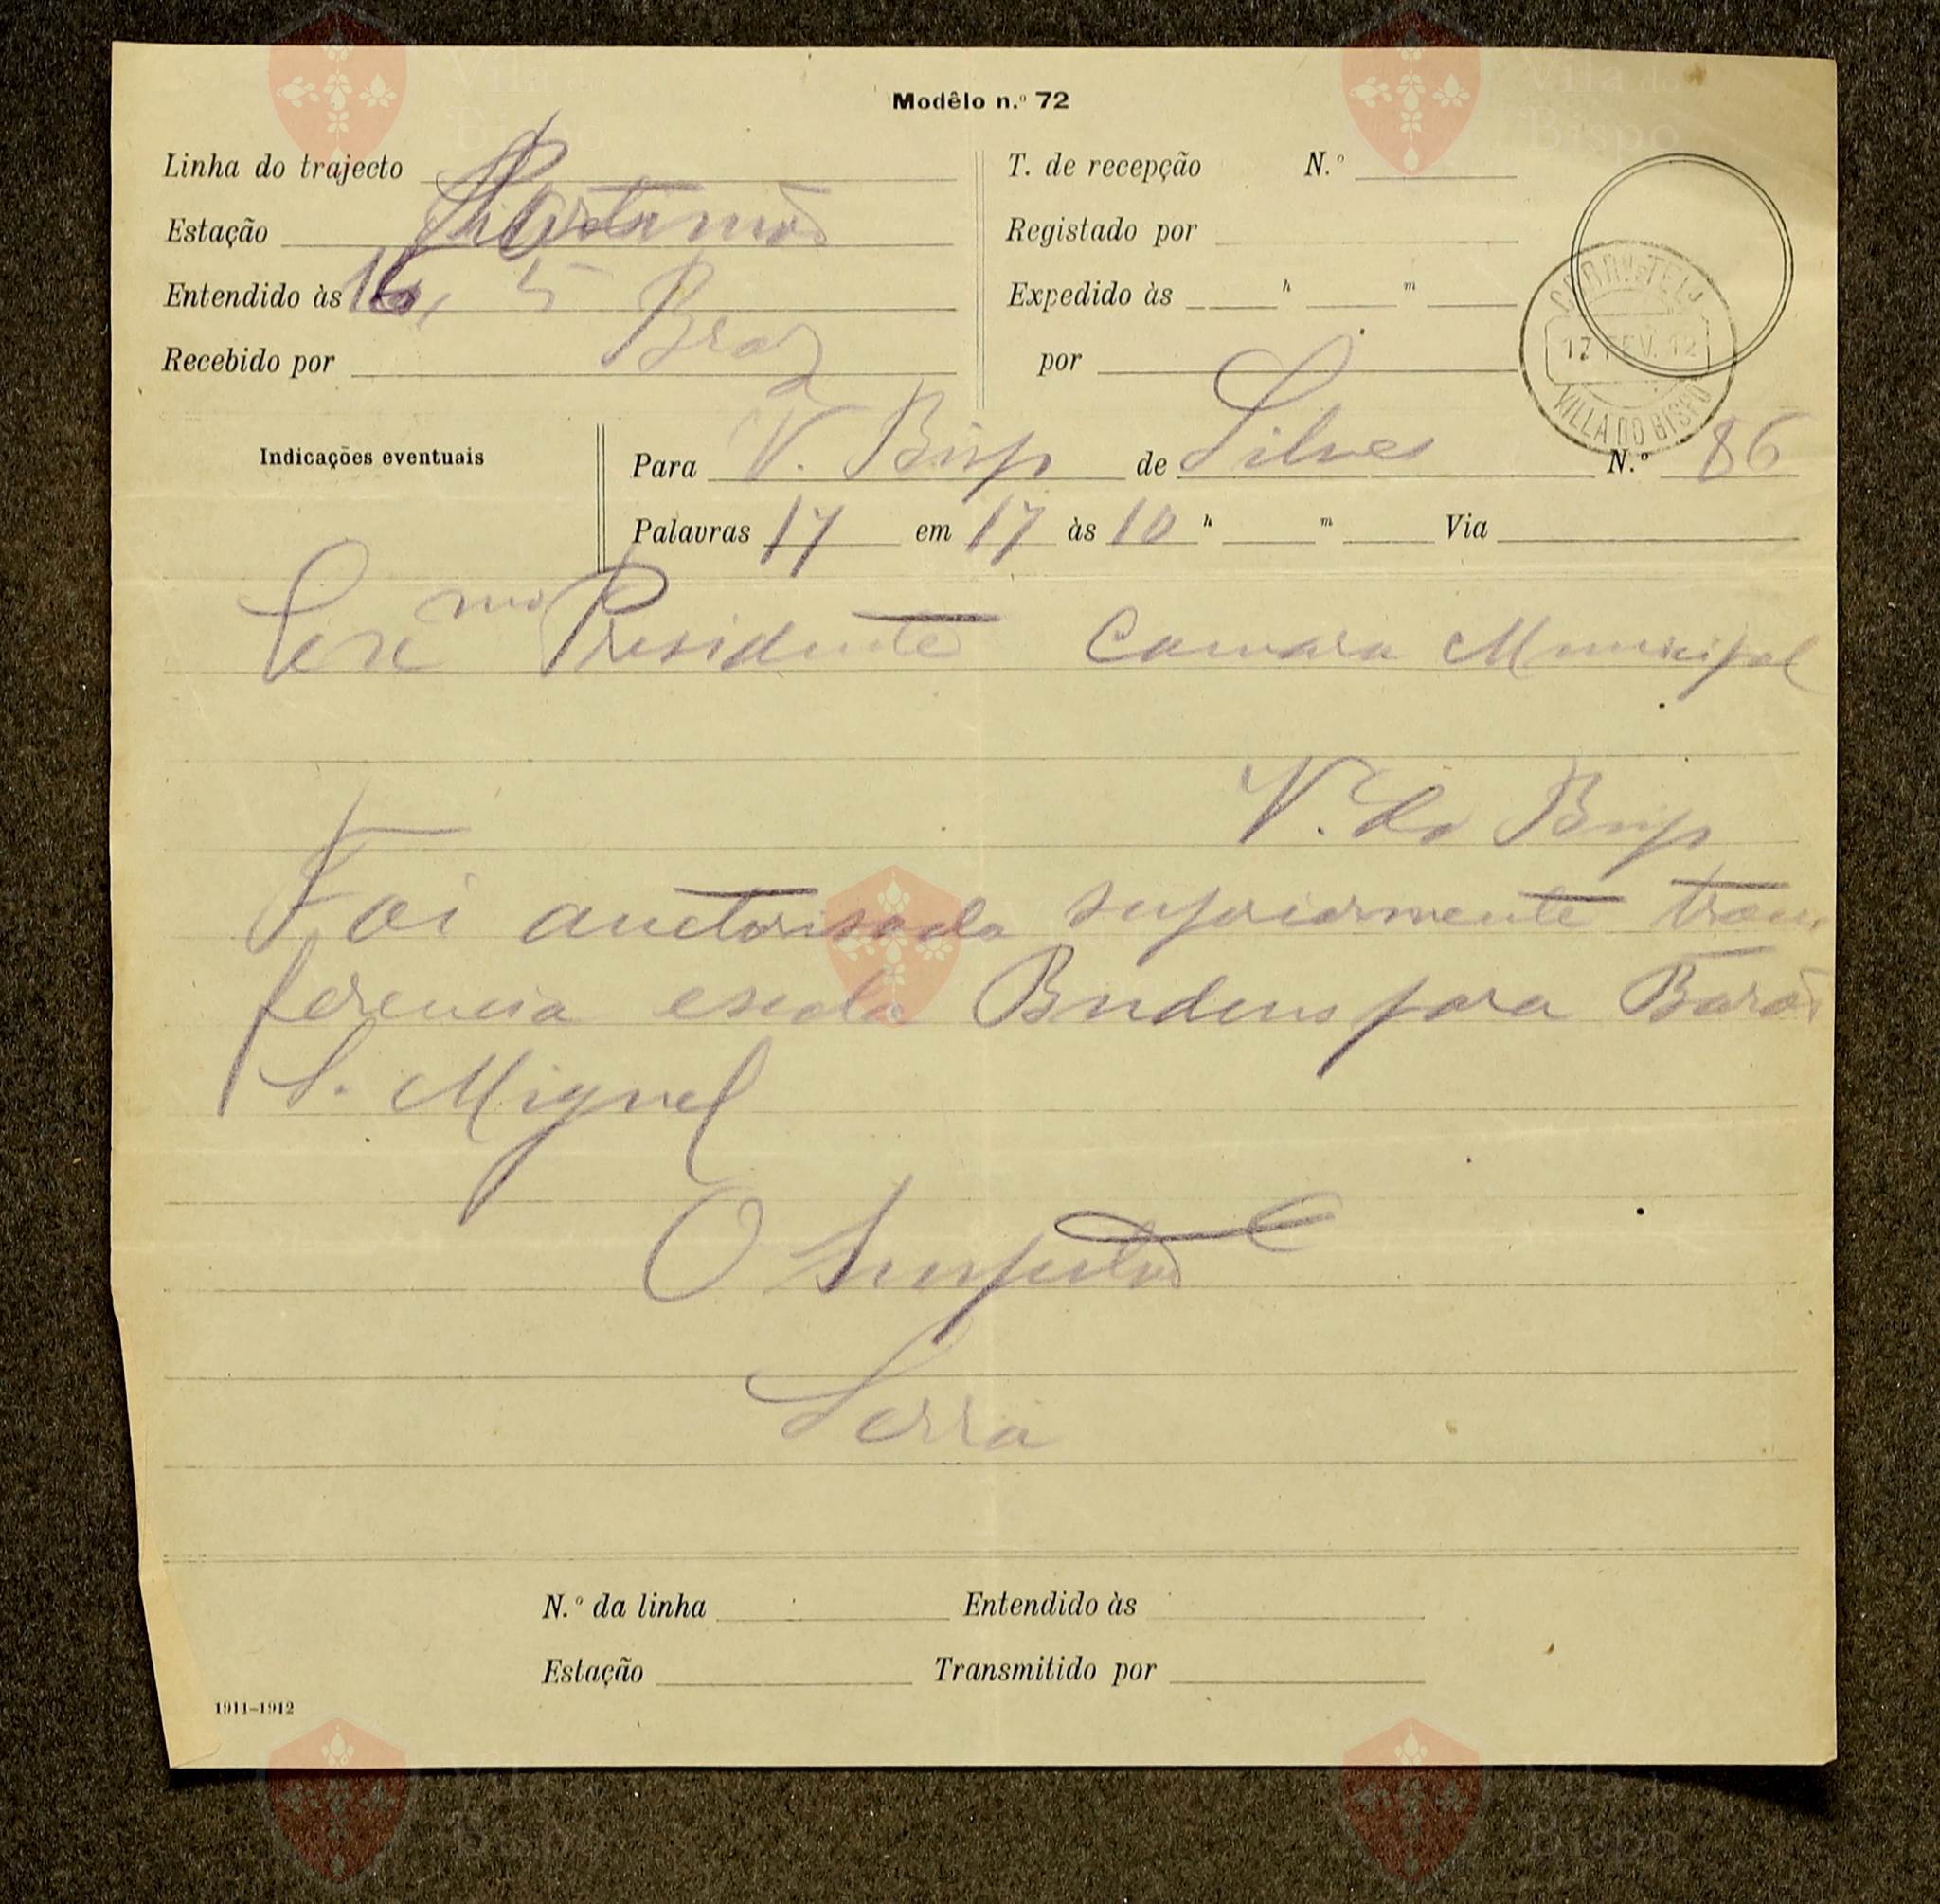 Modêlo n.º 72
Linha do trajecto
Estação Portimão
Entendido às 16, 5
Recebido por Braz
T. de recepção N.º
Registado por
Expedido às h m
por
CORR. E TEL.
17 FEV. 12
VILLA DO BISPO
Indicações eventuais
Para V. Bispo de Silves N.º 86
Palavras 17 em 17 às 10 h m Via
Exmo Presidente Camara Municipal
V. do Bispo
Foi auctorisada superiormente trans
ferencia escola Budens para Barão
S. Miguel
O Inspector
Serra
N.º da linha Entendido às
Estação Transmitido por
1911-1912
Vila do
Bispo
Vila do
Bispo
Vila do
Bispo
Vila do
Bispo